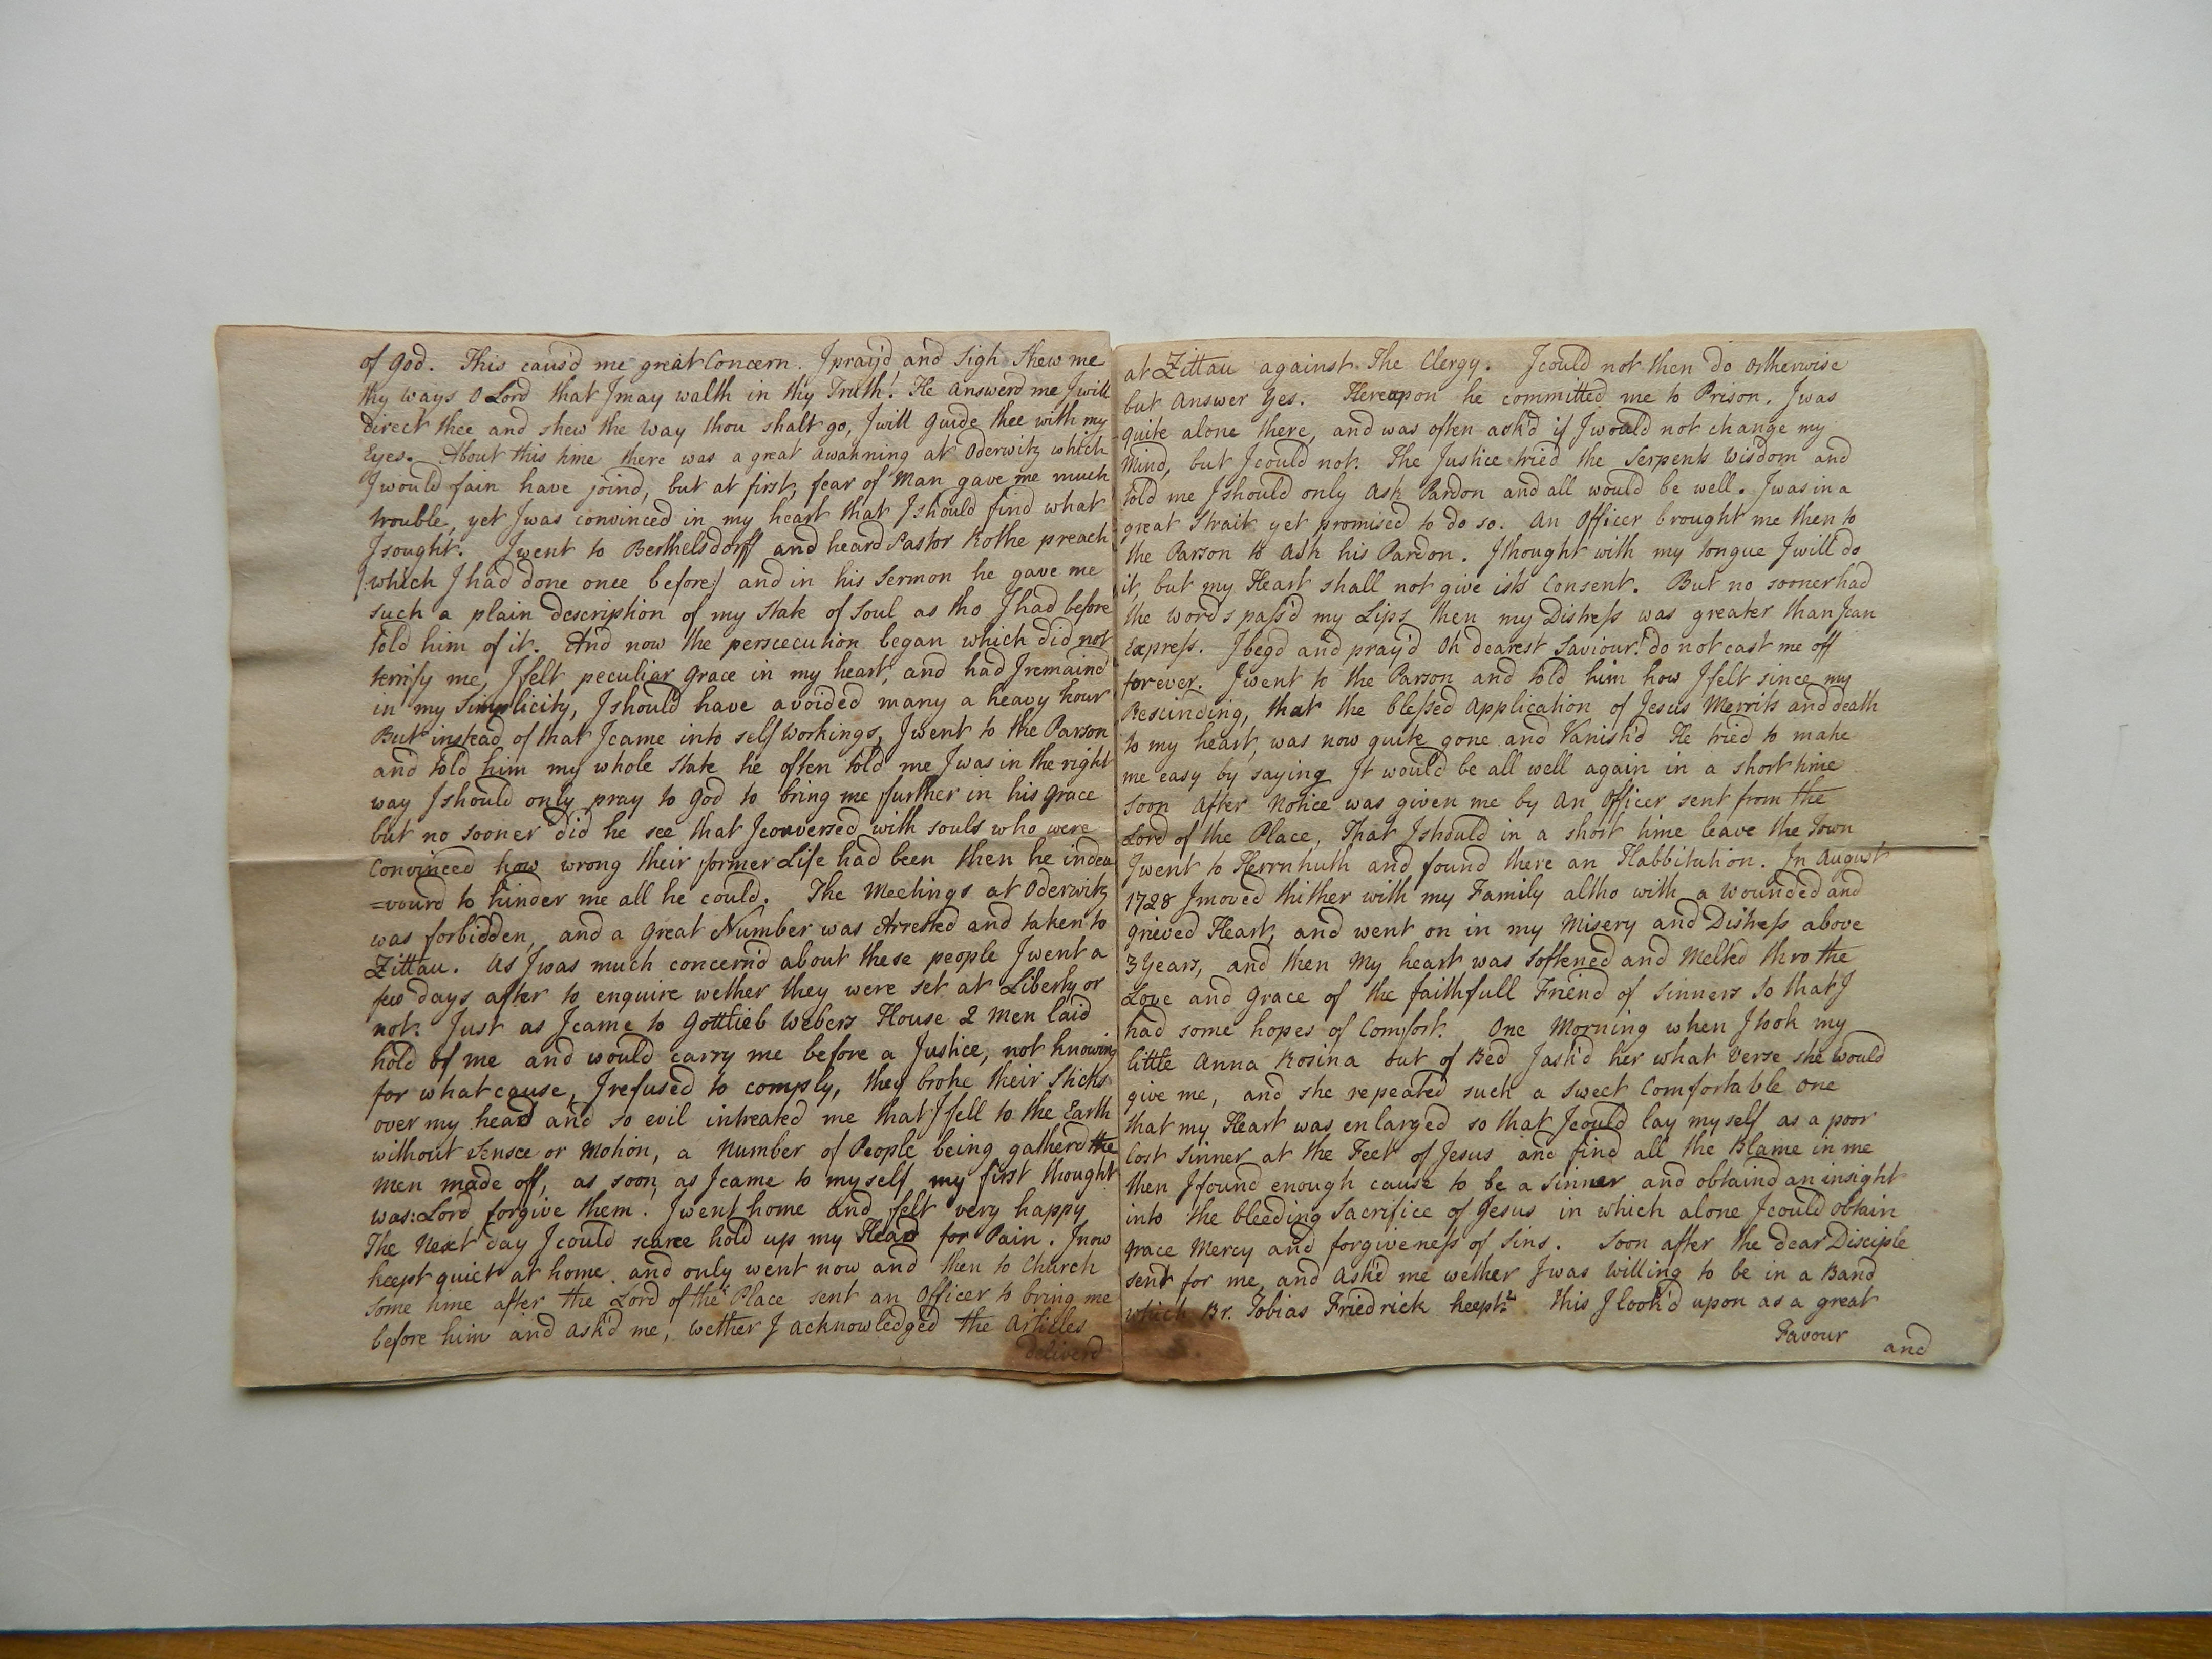 of God. This caus'd me great Concern. I pray'd and Sigh Shew me
thy ways O Lord that I may walth in thy Truth! He answerd me I will
direct thee and shew the way thou shalt go, I will guide thee with my
Eyes. About this time there was a great awakning at Oderwitz which
I would fain have joind, but at first, fear of Man gave me much
trouble, yet I was convinced in my heart that I should find what
I sought. I went to Berthelsdorff and heard Pastor Rothe preach
(which I had done once before) and in his Sermon he gave me
such a plain description of my State of Soul as tho I had before
told him of it. And now the persecution began which did not
terrify me, I felt peculiar grace in my heart, and had I remaind
in my Simplicity, I should have avoided many a heavy hour
But instead of that I came into self workings, I went to the Parson
and told him my whole State he often told me I was in the right
way I should only pray to God to bring me further in his grace
but no sooner did he see that I conversed with souls who were
Convinced how wrong their former Life had been then he indea
=vourd to hinder me all he could. The Meetings at Oderwitz
was forbidden, and a great Number was Arrested and taken to
Zittau. As I was much concern'd about these people I went a
few days after to enquire wether they were set at Liberty or
not. Just as I came to Gottlieb Webers House 2 Men laid
hold of me and would carry me before a Justice, not knowing
for what cause, I refused to comply, they broke their Sticks
over my head and so evil intreated me that I fell to the Earth
without Sensce or Motion, a Number of People being gatherd the
Men made off, as soon as I came to myself my first thought
was: Lord forgive them. I went home and felt very happy
The Next day I could scarce hold up my Head for Pain. I now
keept quiet at home and only went now and then to Church
some time after the Lord of the Place sent an Officer to bring me
before him and ask'd me, wether I acknowledged the Articles
deliverd
at Zittau against The Clergy. I could not then do otherwise
but Answer Yes. Hereupon he committed me to Prison. I was
quite alone there, and was often ask'd if I would not change my
Mind, but I could not. The Justice tried the Serpents Wisdom and
told me I should only ask Pardon and all would be well. I was in a
great Strait yet promised to do so. An Officer brought me then to
the Parson to ask his Pardon. I thought with my tongue I will do
it, but my Heart shall not give its Consent. But no sooner had
the words pass'd my Lips then my Distress was greater than I can
Express. I beg'd and pray'd Oh dearest Saviour! do not cast me off
for ever. I went to the Parson and told him how I felt since my
Rescinding, that the blessed Application of Jesus Merrits and death
to my heart, was now quite gone and Vanish'd He tried to make
me easy by saying It would be all well again in a short time
Soon After Notice was given me by an Officer sent from the
Lord of the Place, That I should in a short time leave the Town
I went to Herrnhuth and found there an Habbitation. In August
1728 I moved thither with my Family altho with a wounded and
grieved Heart, and went on in my Misery and Distress above
3 Years, and then My heart was Softened and Melted thro the
Love and Grace of the faithfull Friend of sinners so that I
had some hopes of Comfort. One Morning when I took my
little Anna Rosina out of Bed I ask'd her what Verse she would
give me, and she repeated such a sweet Comfortable one
that my Heart was enlarged so that I could lay myself as a poor
Lost Sinner at the Feet of Jesus and find all the Blame in me
then I found enough cause to be a Sinner and obtaind an insight
into the bleeding Sacrifice of Jesus in which alone I could obtain
grace Mercy and forgiveness of Sins. Soon after the dear Disciple
sent for me, and ask'd me wether I was Willing to be in a Band
which Br. Tobias Friedrick keept. This I look'd upon as a great
Favour and